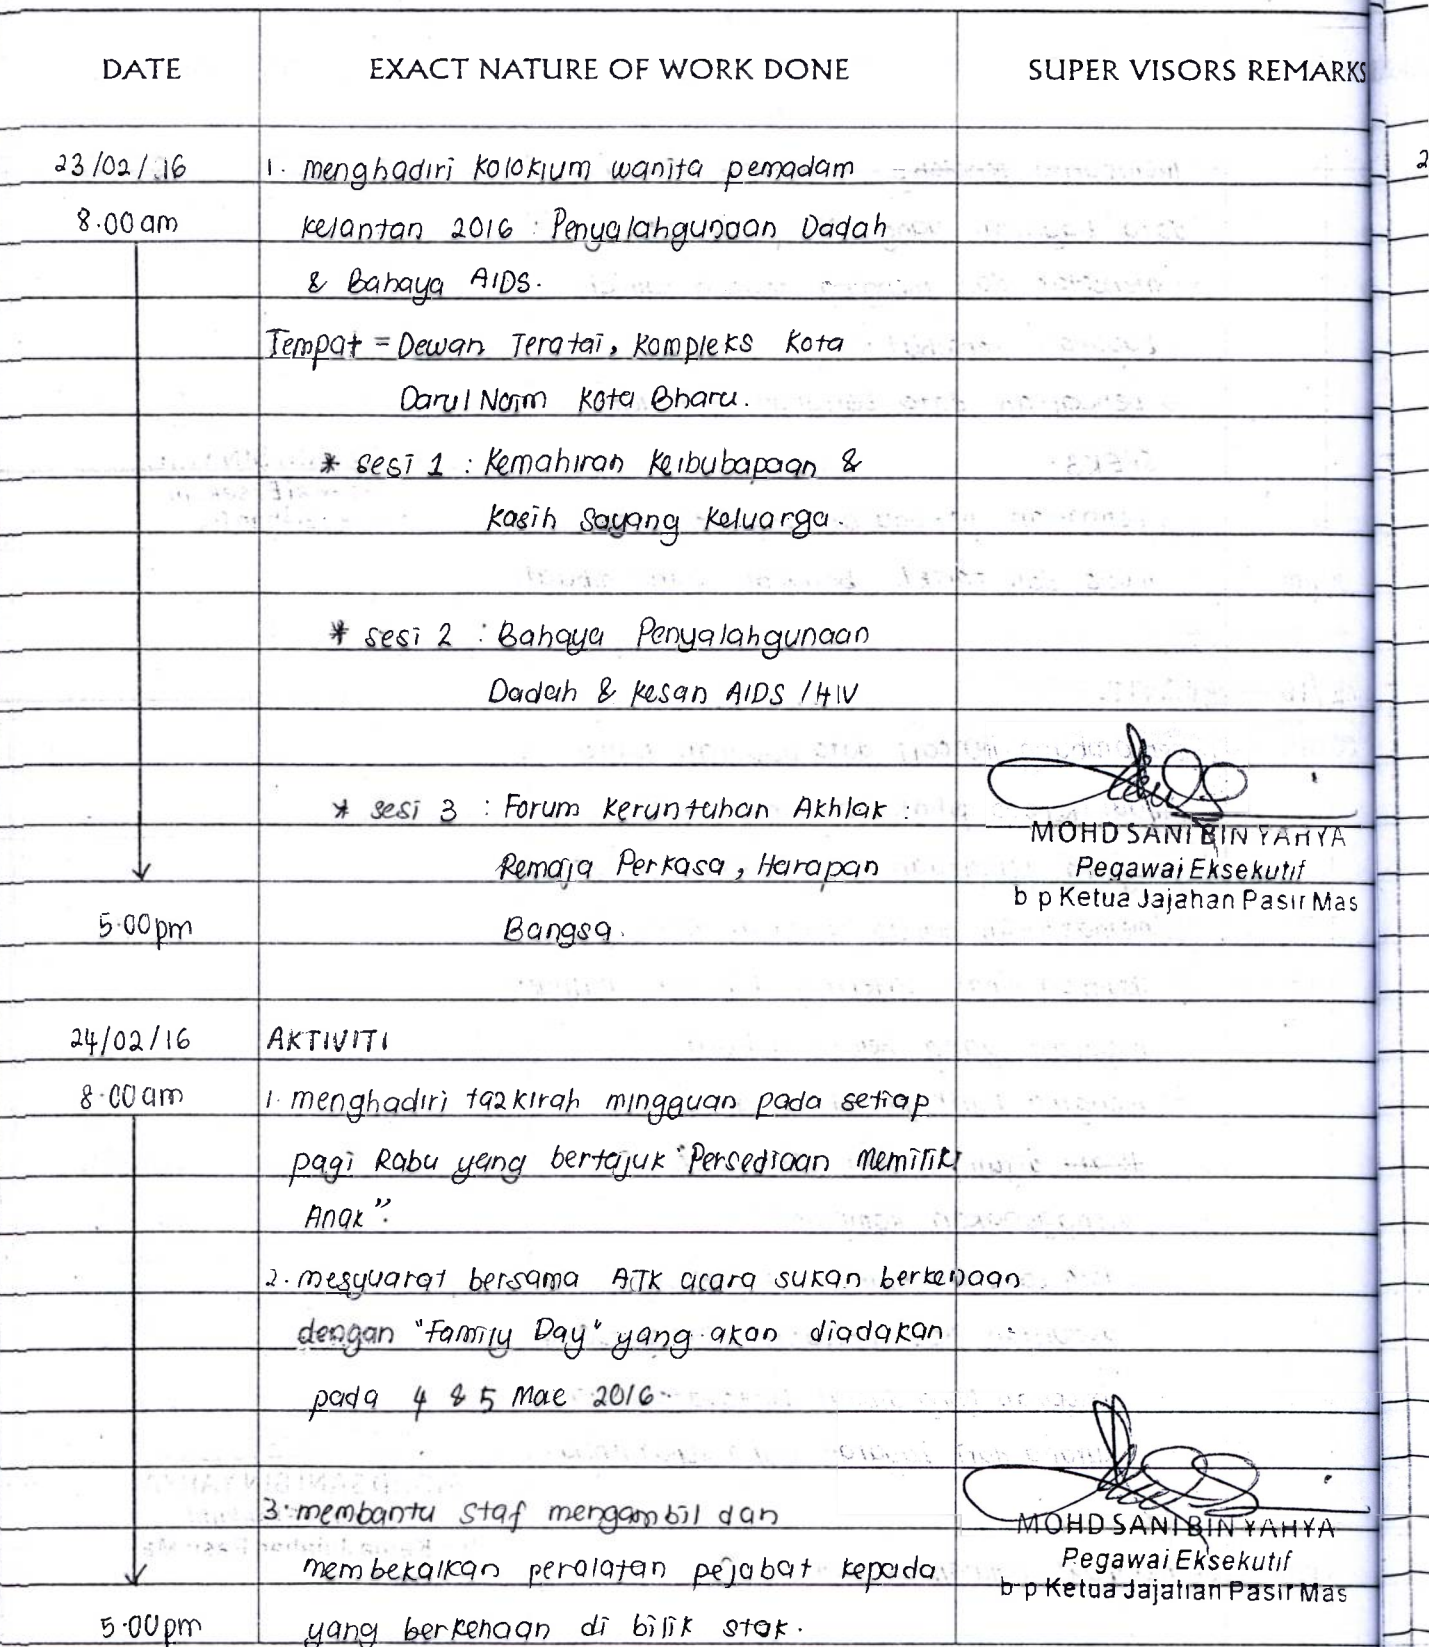 DATE EXACT NATURE OF WORK DONE SUPER VISORS REMARKS
23/02/16 1. menghadiri kolokium wanita pemadam
8.00 am kelantan 2016 : Penyalahgunaan Dadah
& Bahaya AIDS.
Tempat = Dewan Teratai, Kompleks Kota
Darul Naim Kota Bharu.
* sesi 1 : Kemahiran Keibubapaan &
Kasih Sayang Keluarga.
* sesi 2 : Bahaya Penyalahgunaan
Dadah & Kesan AIDS / HIV
* sesi 3 : Forum Keruntuhan Akhlak :
Remaja Perkasa, Harapan
5.00 pm Bangsa.
MOHD SANI BIN YAHYA
Pegawai Eksekutif
b p Ketua Jajahan Pasir Mas
24/02/16 AKTIVITI
8.00 am 1. menghadiri tazkirah mingguan pada setiap
pagi Rabu yang bertajuk "Persediaan Memiliki
Anak".
2. mesyuarat bersama AJK acara sukan berkenaan
dengan "Family Day" yang akan diadakan
pada 4 & 5 Mac 2016.
3. membantu staf mengambil dan
membekalkan peralatan pejabat kepada
5.00 pm yang berkenaan di bilik stok.
MOHD SANI BIN YAHYA
Pegawai Eksekutif
b p Ketua Jajahan Pasir Mas